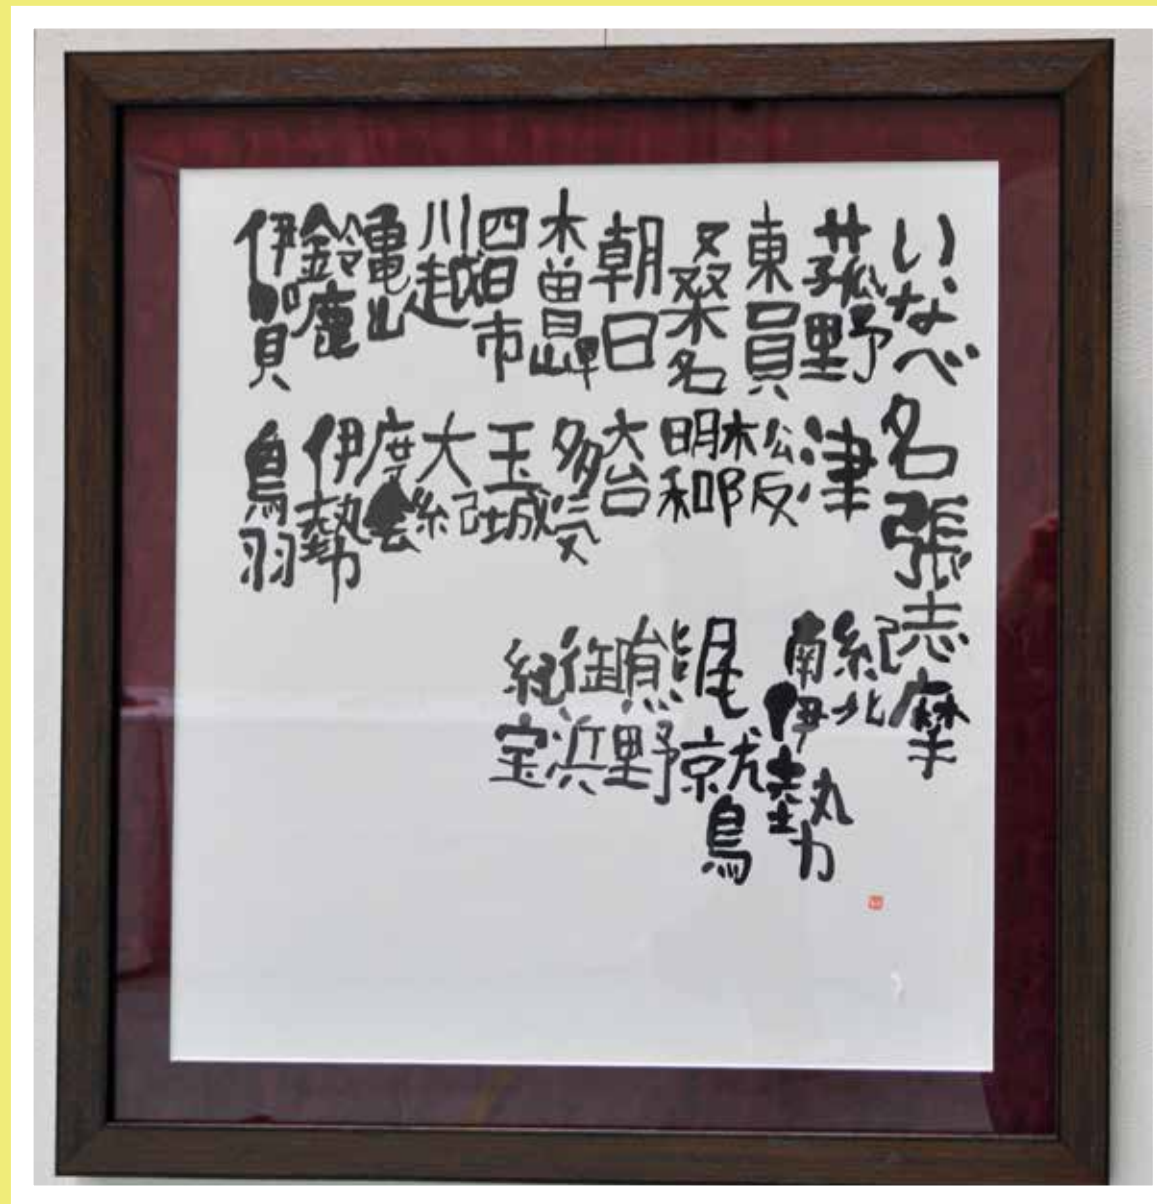 いなべ
菰野
東員
桑名
朝日
木曽岬
四日市
川越
亀山
鈴鹿
伊賀
名張
津
松阪
明和
大台
多気
玉城
大紀
度会
伊勢
鳥羽
志摩
紀北
南伊勢
尾鷲
熊野
御浜
紀宝